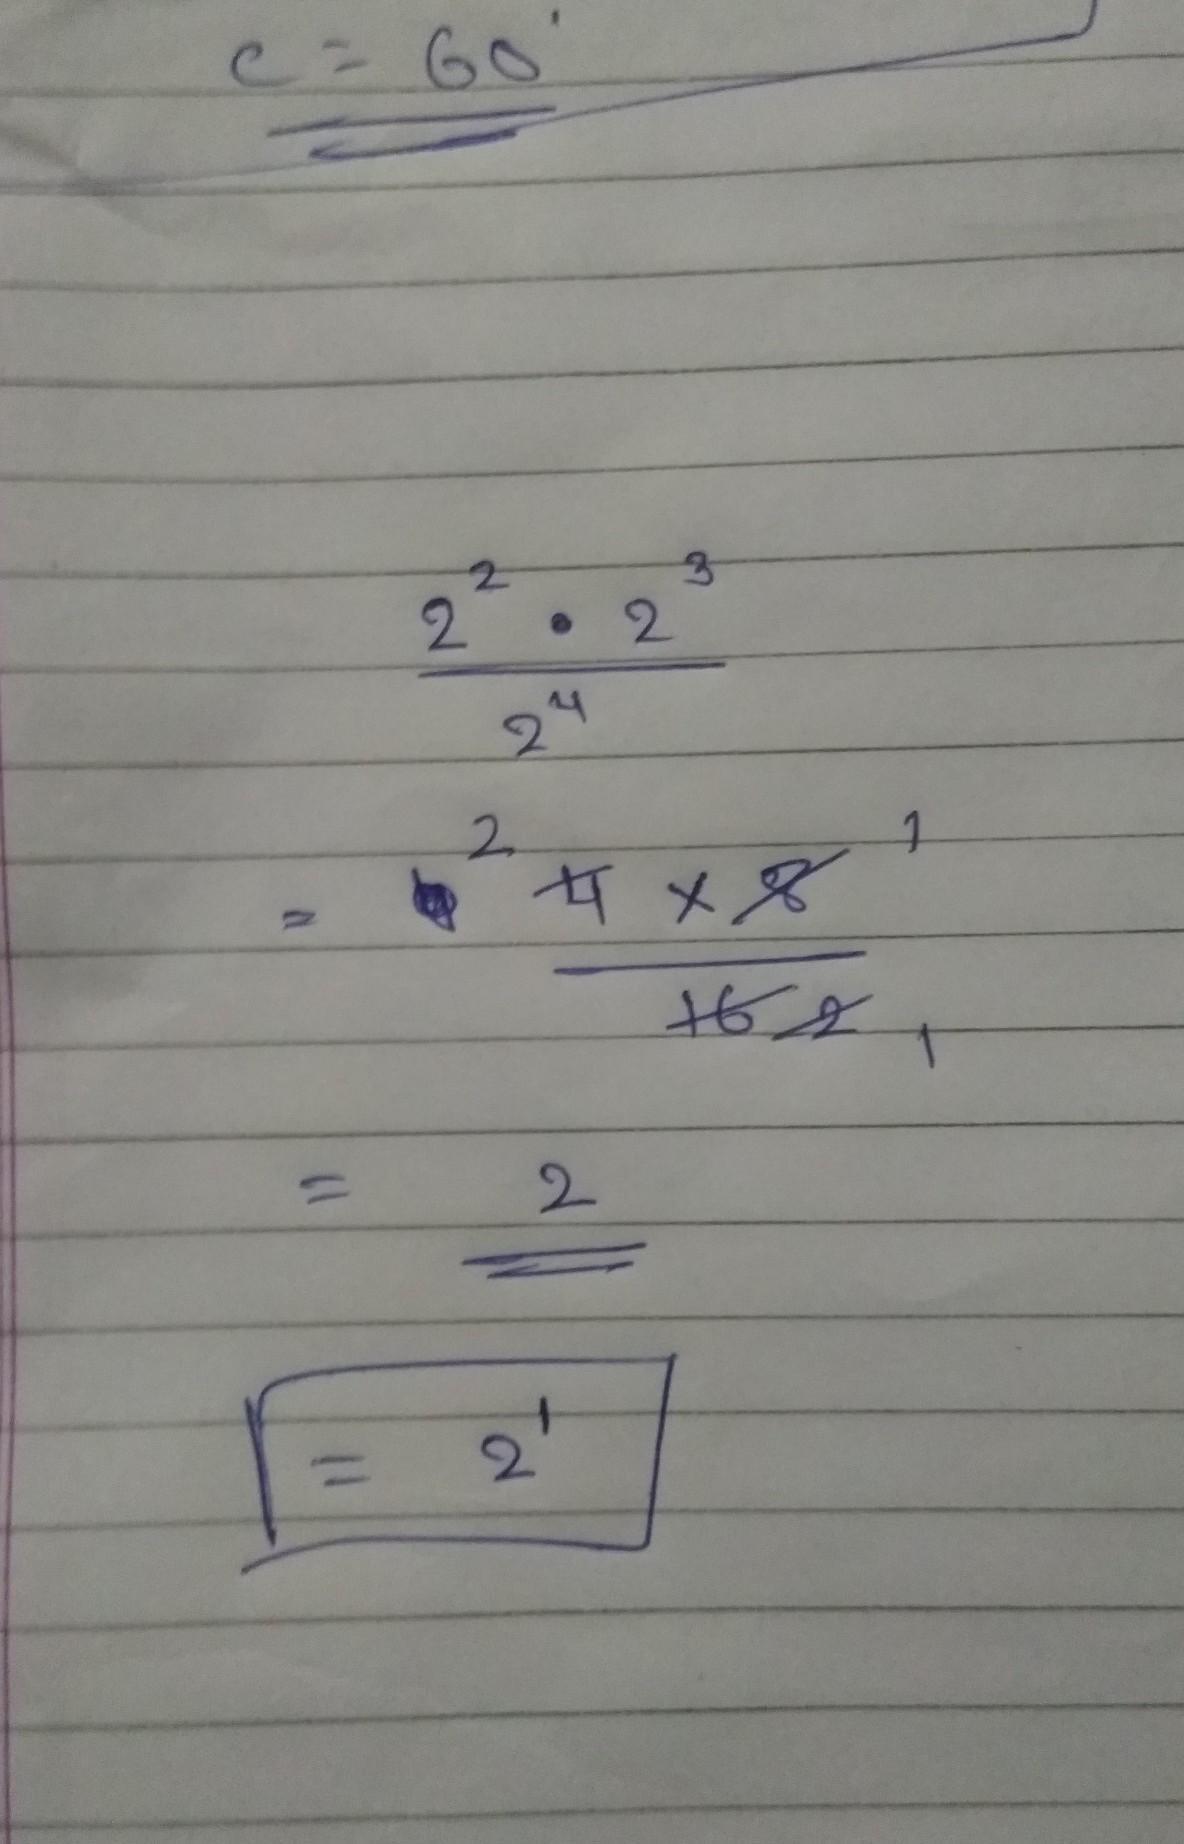 c = 60°
2² • 2³
2⁴
= 2 4 × 8 1
16 2 1
= 2
= 2¹